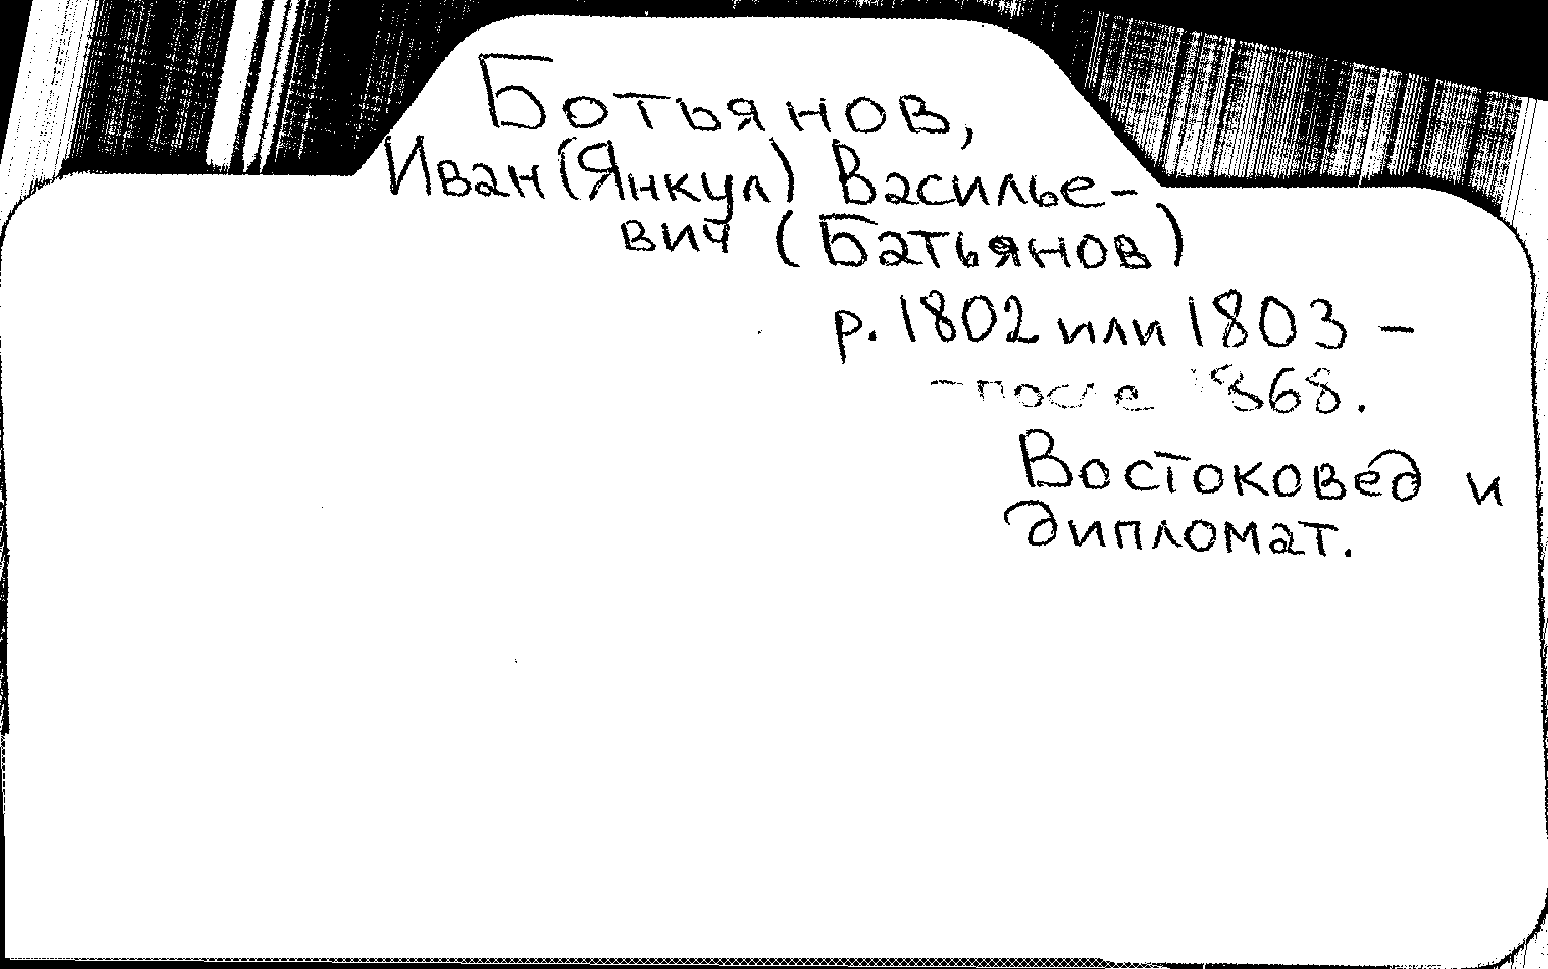 Ботьянов,
Иван (Янкул) Василье-
вич (Батьянов)
р. 1802 или 1803 –
– после 1868.
Востоковед и
дипломат.